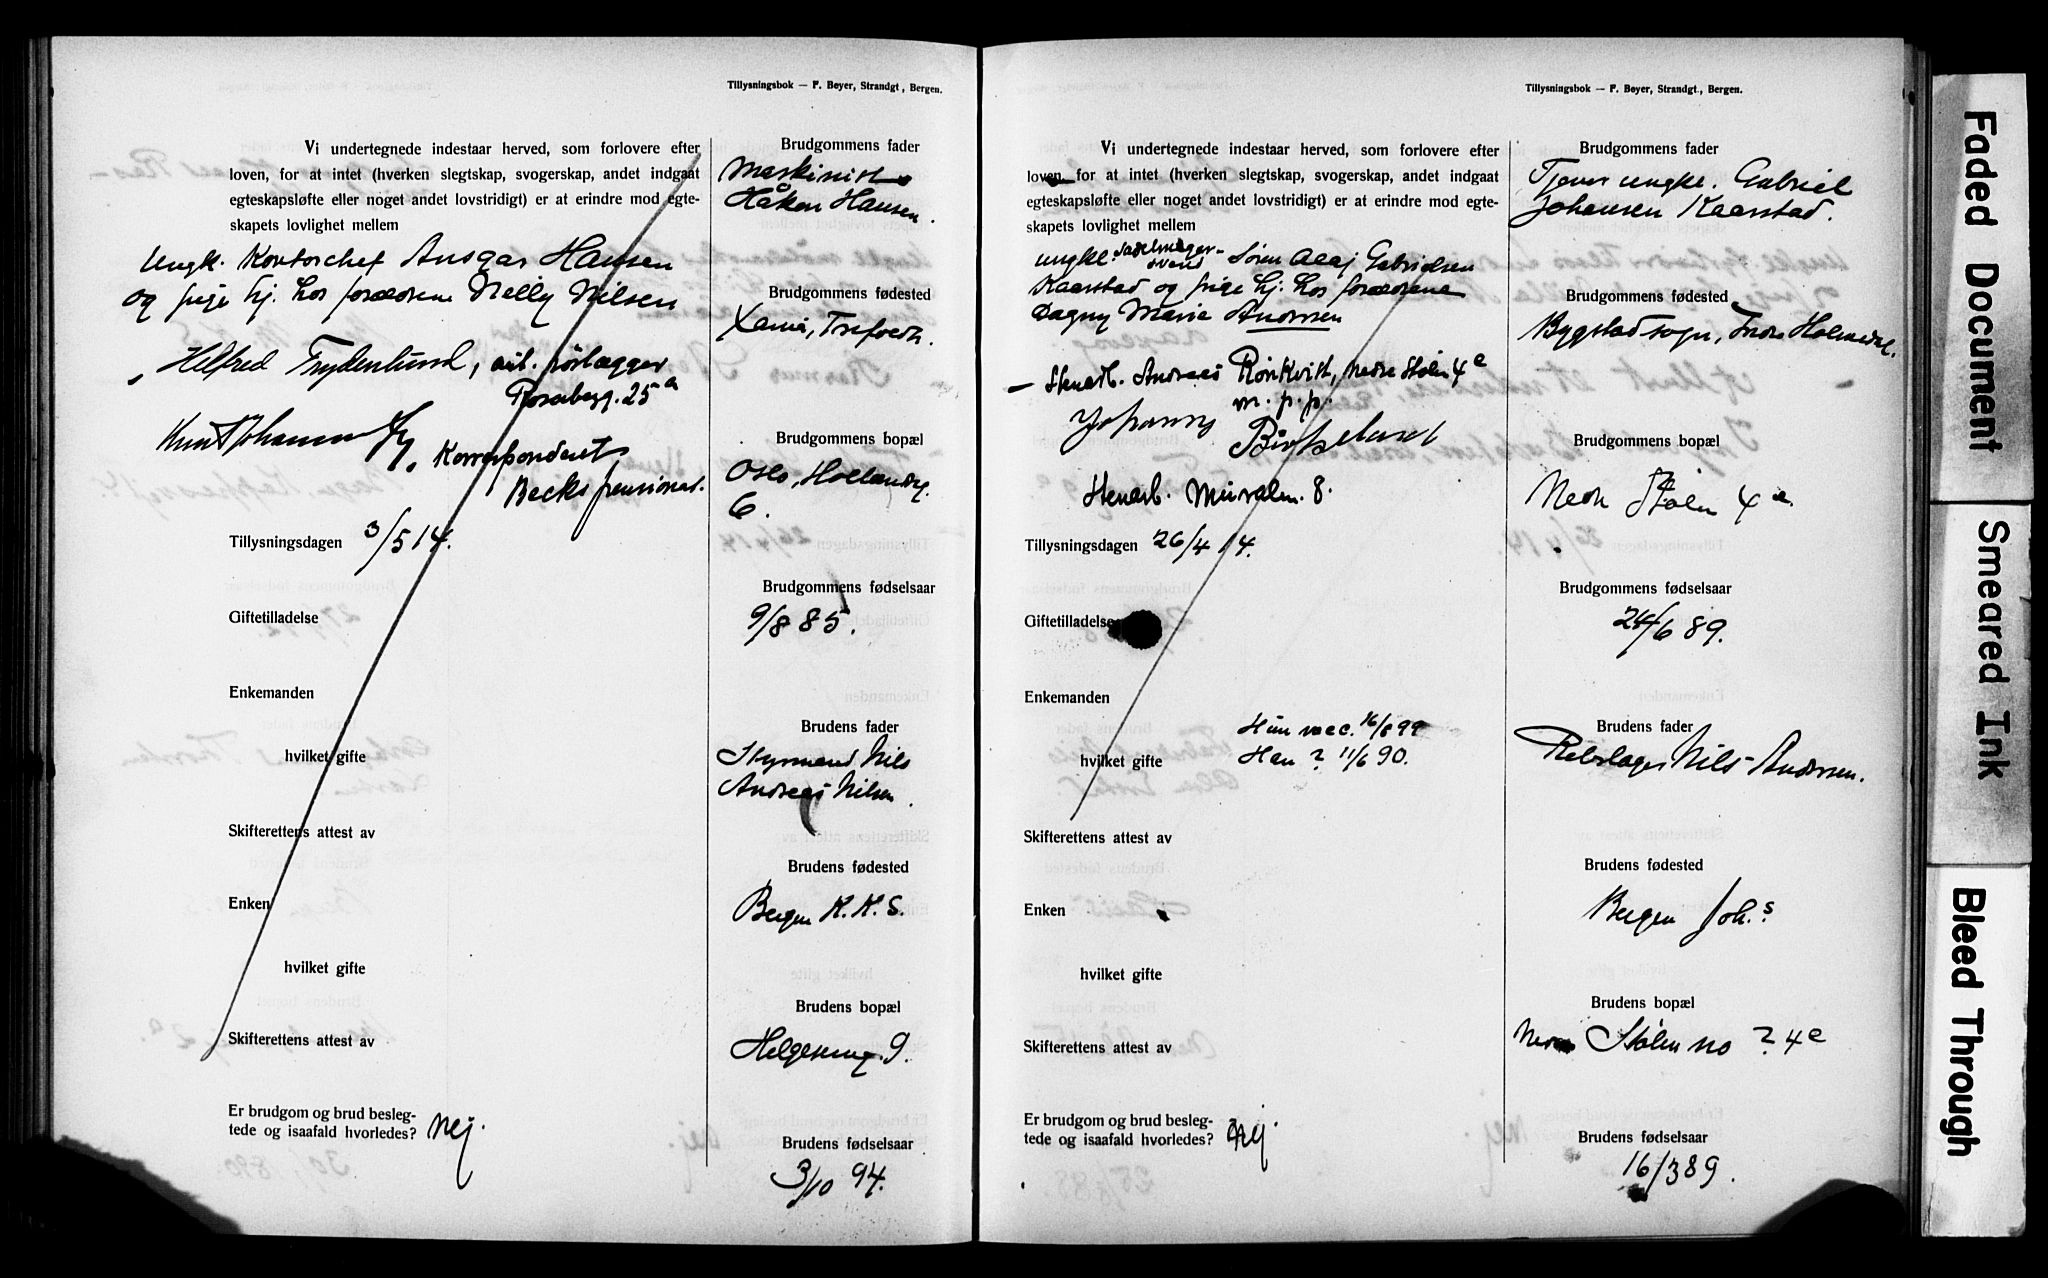 Tillysningsbok — F. Beyer, Strandgt, Bergen.
Vi undertegnede indestaar herved, som forlovere efter
loven, for at intet (hverken slegtskap, svogerskap, andet indgaat
egteskapsløfte eller noget andet lovstridigt) er at erindre mod egte-
skapets lovlighet mellem
Ungk. Kontorchef Ansgar Hansen
og pige hj. hos forældrene Nelly Nilsen
Helfred Frydenlund, aut. rørlægger
Rosenbergg. 25a
Knut Johannes
Korrespondent
Becks pensionat.
Tillysningsdagen 3/5 14.
Giftetilladelse
Enkemanden
hvilket gifte
Skifterettens attest av
Enken
hvilket gifte
Skifterettens attest av
Er brudgom og brud besleg-
tede og isaafald hvorledes? Nej.
Brudgommens fader
Maskinist
Håkon Hansen.
Brudgommens fødested
Brudgommens bopæl
Oslo, Hollendg.
6.
Brudgommens fødselsaar
9/8 85.
Brudens fader
Styrmand Nils
Andreas Nilsen.
Brudens fødested
Bergen K. K. S.
Brudens bopæl
Helgesensg. 9.
Brudens fødselsaar
3/10 94.
Tillysningsbok — F. Beyer, Strandgt., Bergen.
Vi undertegnede indestaar herved, som forlovere efter
loven, for at intet (hverken slegtskap, svogerskap, andet indgaat
egteskapsløfte eller noget andet lovstridigt) er at erindre mod egte-
skapets lovlighet mellem
ungkl. sadelmager-
svend Søren Olai Gabrielsen
Kaarstad og pige hj. hos forældrene
Dagny Marie Andersen
— Stenarb. Andreas Rönkvist, Nedre Stølen 4e
m. p. p.
Johannes
Stenarb. Muralm. 8.
Tillysningsdagen 26/4 14.
Giftetilladelse
Enkemanden
Hun vacc. 16/8 99
hvilket gifte Han ? 11/6 90.
Skifterettens attest av
Enken
hvilket gifte
Skifterettens attest av
Er brudgom og brud besleg-
tede og isaafald hvorledes? Nej
Brudgommens fader
ungkl. Gabriel
Johansen Kaarstad.
Brudgommens fødested
Bygstad sogn, Indre Holmedal.
Brudgommens bopæl
Nedre Stølen 4e.
Brudgommens fødselsaar
24/6 89.
Brudens fader
Rebslager Nils Andersen.
Brudens fødested
Bergen Joh.s
Brudens bopæl
Nedre Stølen no ? 4e
Brudens fødselsaar
16/3 89.
Faded Document
Smeared Ink
Bleed Through